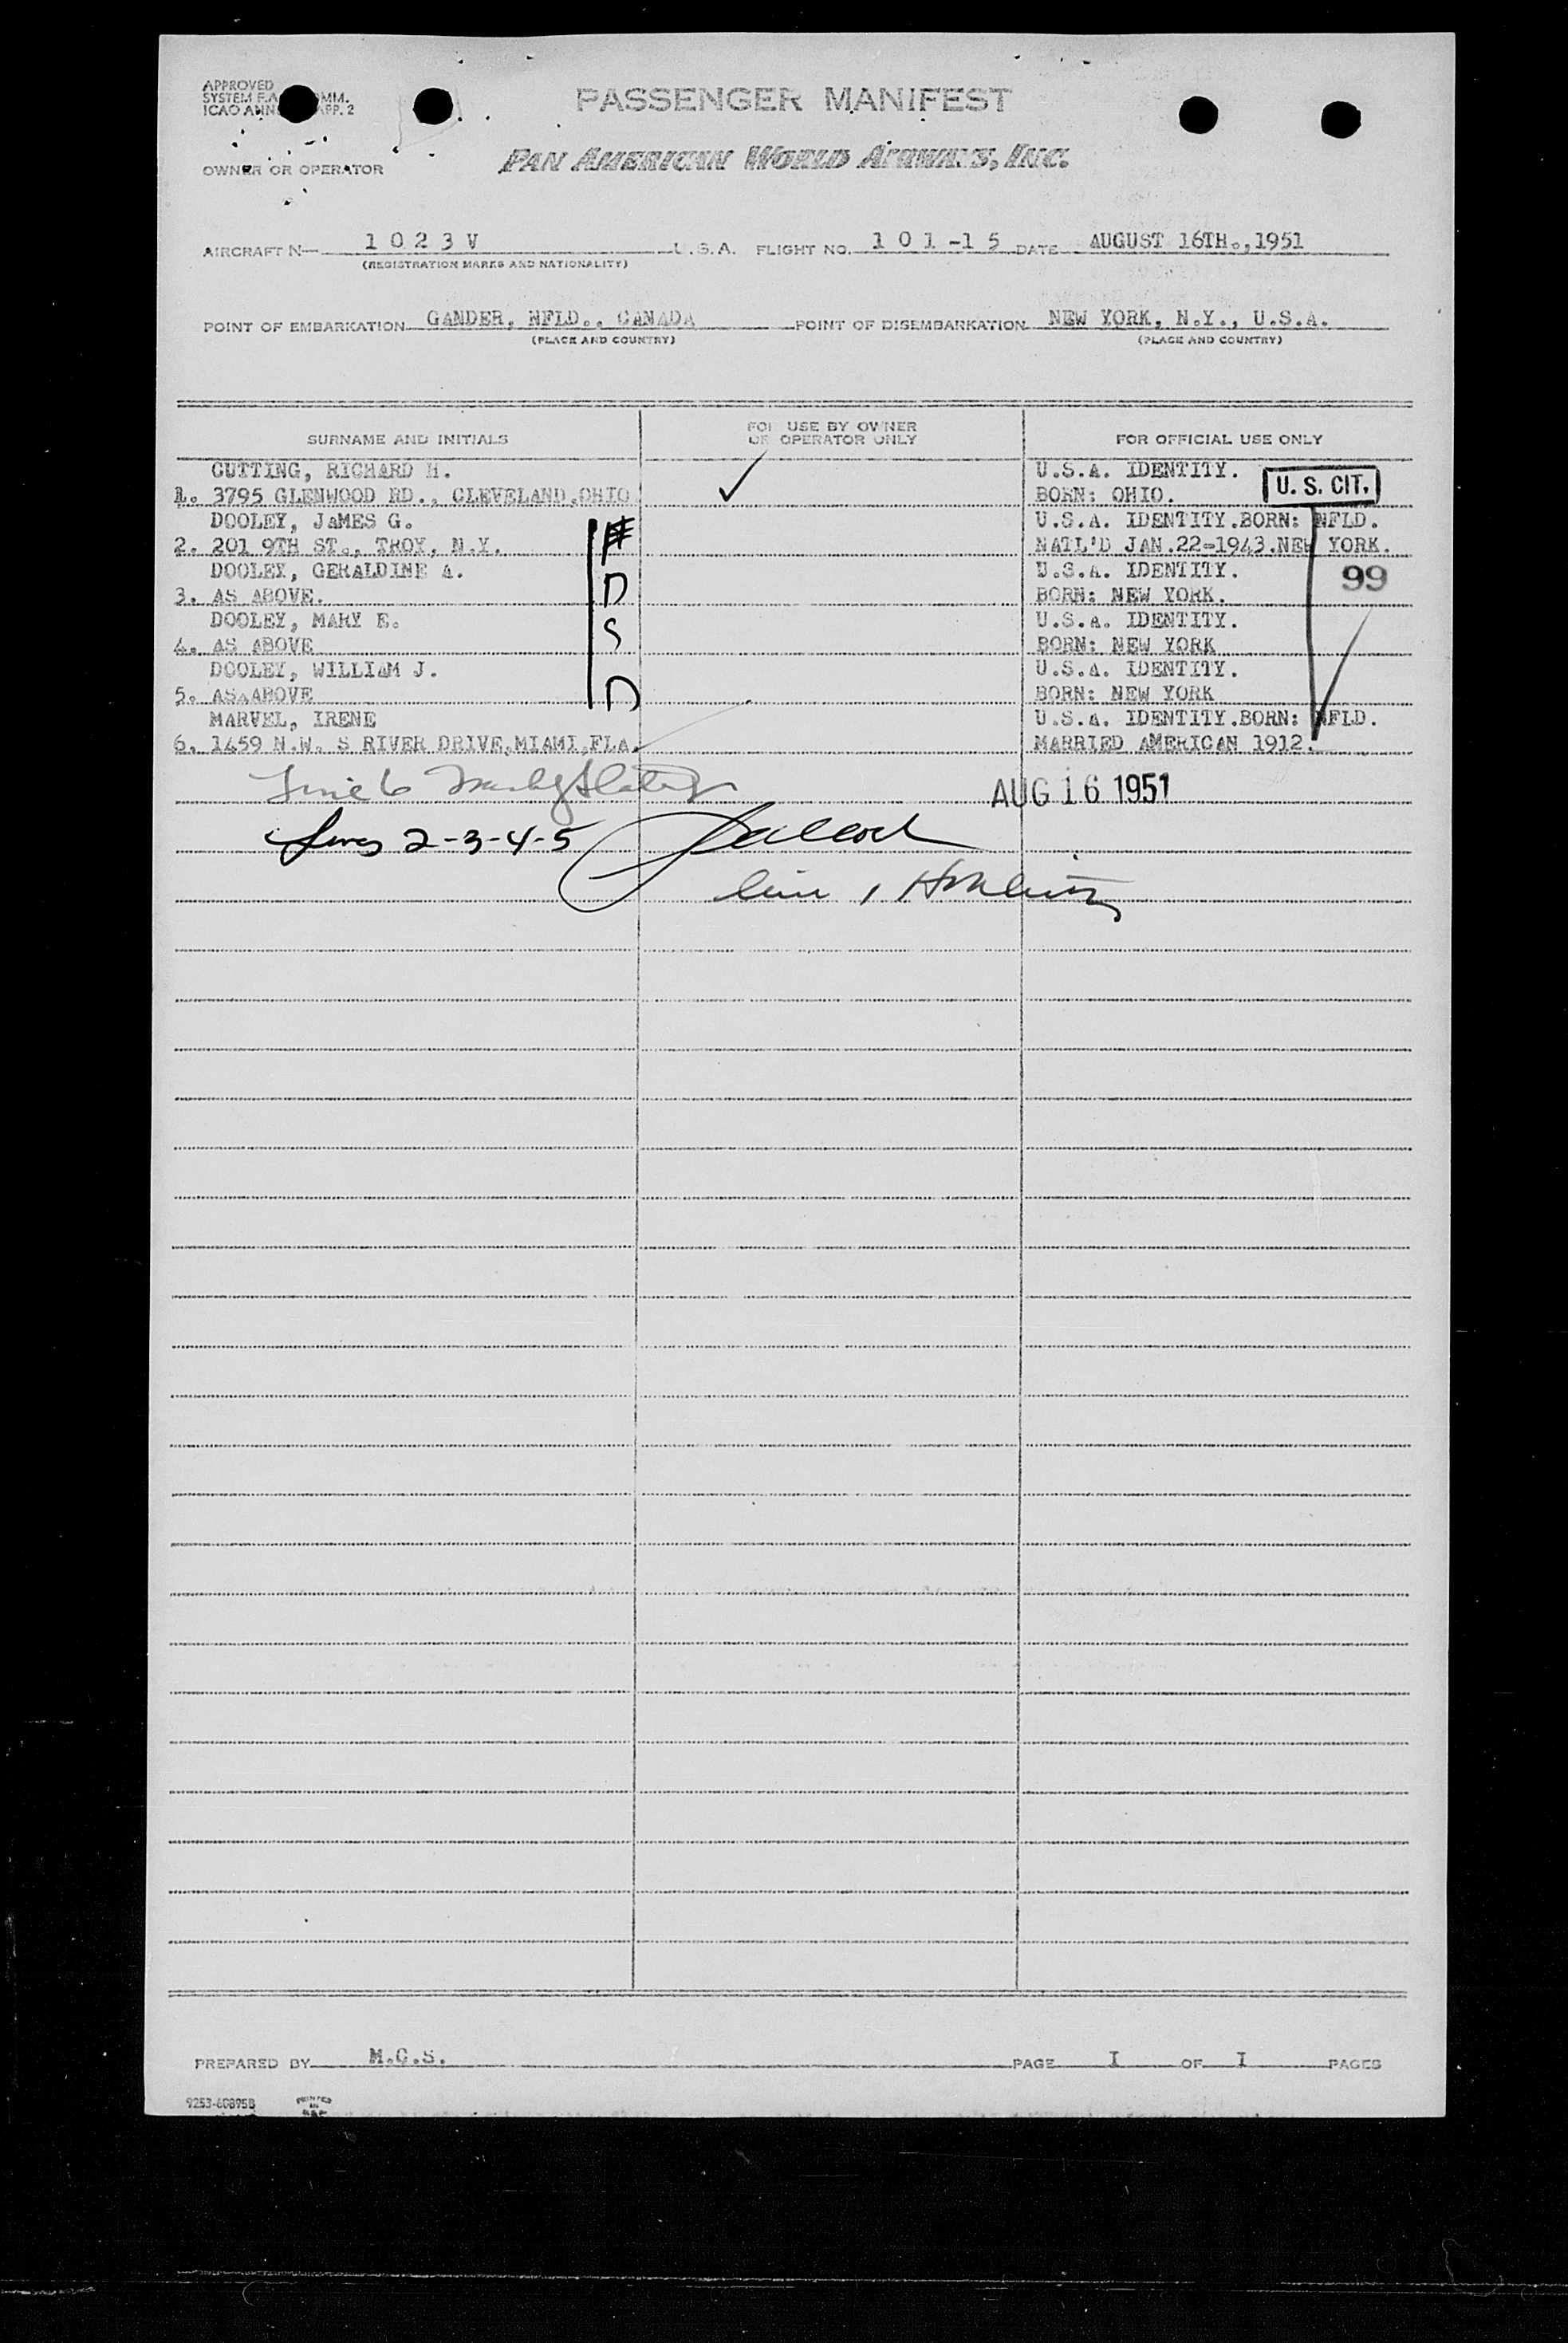 APPROVED
SYSTEM F.A. COMM.
ICAO ANN APP. 2
PASSENGER MANIFEST
OWNER OR OPERATOR
PAN AMERICAN WORLD AIRWAYS, INC.
AIRCRAFT N— 1 0 2 3 V U.S.A. FLIGHT NO. 1 0 1 -1 5 DATE AUGUST 16TH.,1951
(REGISTRATION MARKS AND NATIONALITY)
POINT OF EMBARKATION GANDER, NFLD., CANADA POINT OF DISEMBARKATION NEW YORK, N.Y., U.S.A.
(PLACE AND COUNTRY) (PLACE AND COUNTRY)
SURNAME AND INITIALS FOR USE BY OWNER OR OPERATOR ONLY FOR OFFICIAL USE ONLY
CUTTING, RICHARD H. U.S.A. IDENTITY.
1. 3795 GLENWOOD RD., CLEVELAND,OHIO ✓ BORN: OHIO. U. S. CIT.
DOOLEY, JAMES G. U.S.A. IDENTITY.BORN: NFLD.
2. 201 9TH ST., TROY, N.Y. NATL'D JAN.22-1943.NEW YORK.
DOOLEY, GERALDINE A. U.S.A. IDENTITY. 99
3. AS ABOVE. D BORN: NEW YORK.
DOOLEY, MARY E. U.S.A. IDENTITY.
4. AS ABOVE S BORN: NEW YORK
DOOLEY, WILLIAM J. U.S.A. IDENTITY.
5. AS ABOVE D BORN: NEW YORK
MARVEL, IRENE U.S.A. IDENTITY.BORN: NFLD.
6. 1459 N.W. S RIVER DRIVE,MIAMI,FLA. MARRIED AMERICAN 1912.
Line 6
AUG 16 1951
Lines 2-3-4-5
line 1
PREPARED BY M.C.S. PAGE I OF I PAGES
9253-60895B
PRINTED
IN